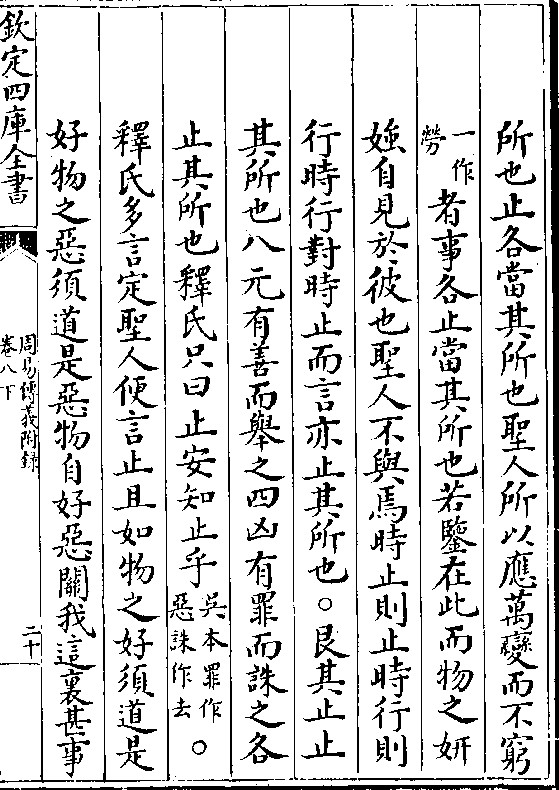 所也止各當其所也聖人所以應萬變而不窮
一作勞者事各止當其所也若鑒在此而物之妍
媸自見於彼也聖人不與焉時止則止時行則
行時行對時止而言亦止其所也○艮其止止
其所也八元有善而舉之四凶有罪而誅之各
止其所也釋氏只曰止安知止乎吳本罪作惡誅作去○
釋氏多言定聖人便言止且如物之好須道是
好物之惡須道是惡物自好惡關我這裏甚事
欽定四庫全書
周易傳義附録
卷八下
二十